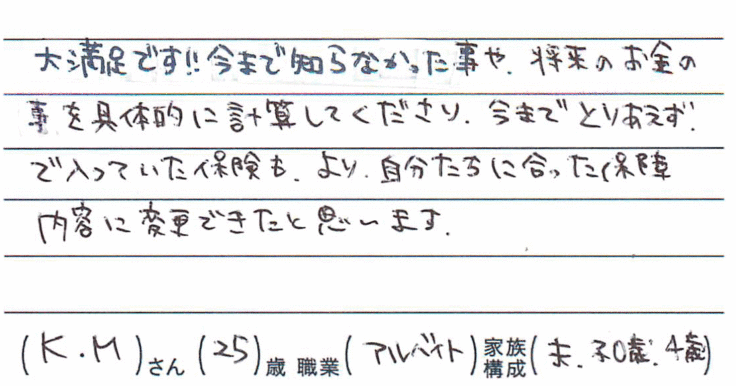 大満足です!!今まで知らなかった事や、将来のお金の
事を具体的に計算してくださり、今までとりあえず、
で入っていた保険も、より、自分たちに合った保障
内容に変更できたと思います。
(K.M)さん (25)歳 職業(アルバイト)家族構成(夫、子0歳、4歳)